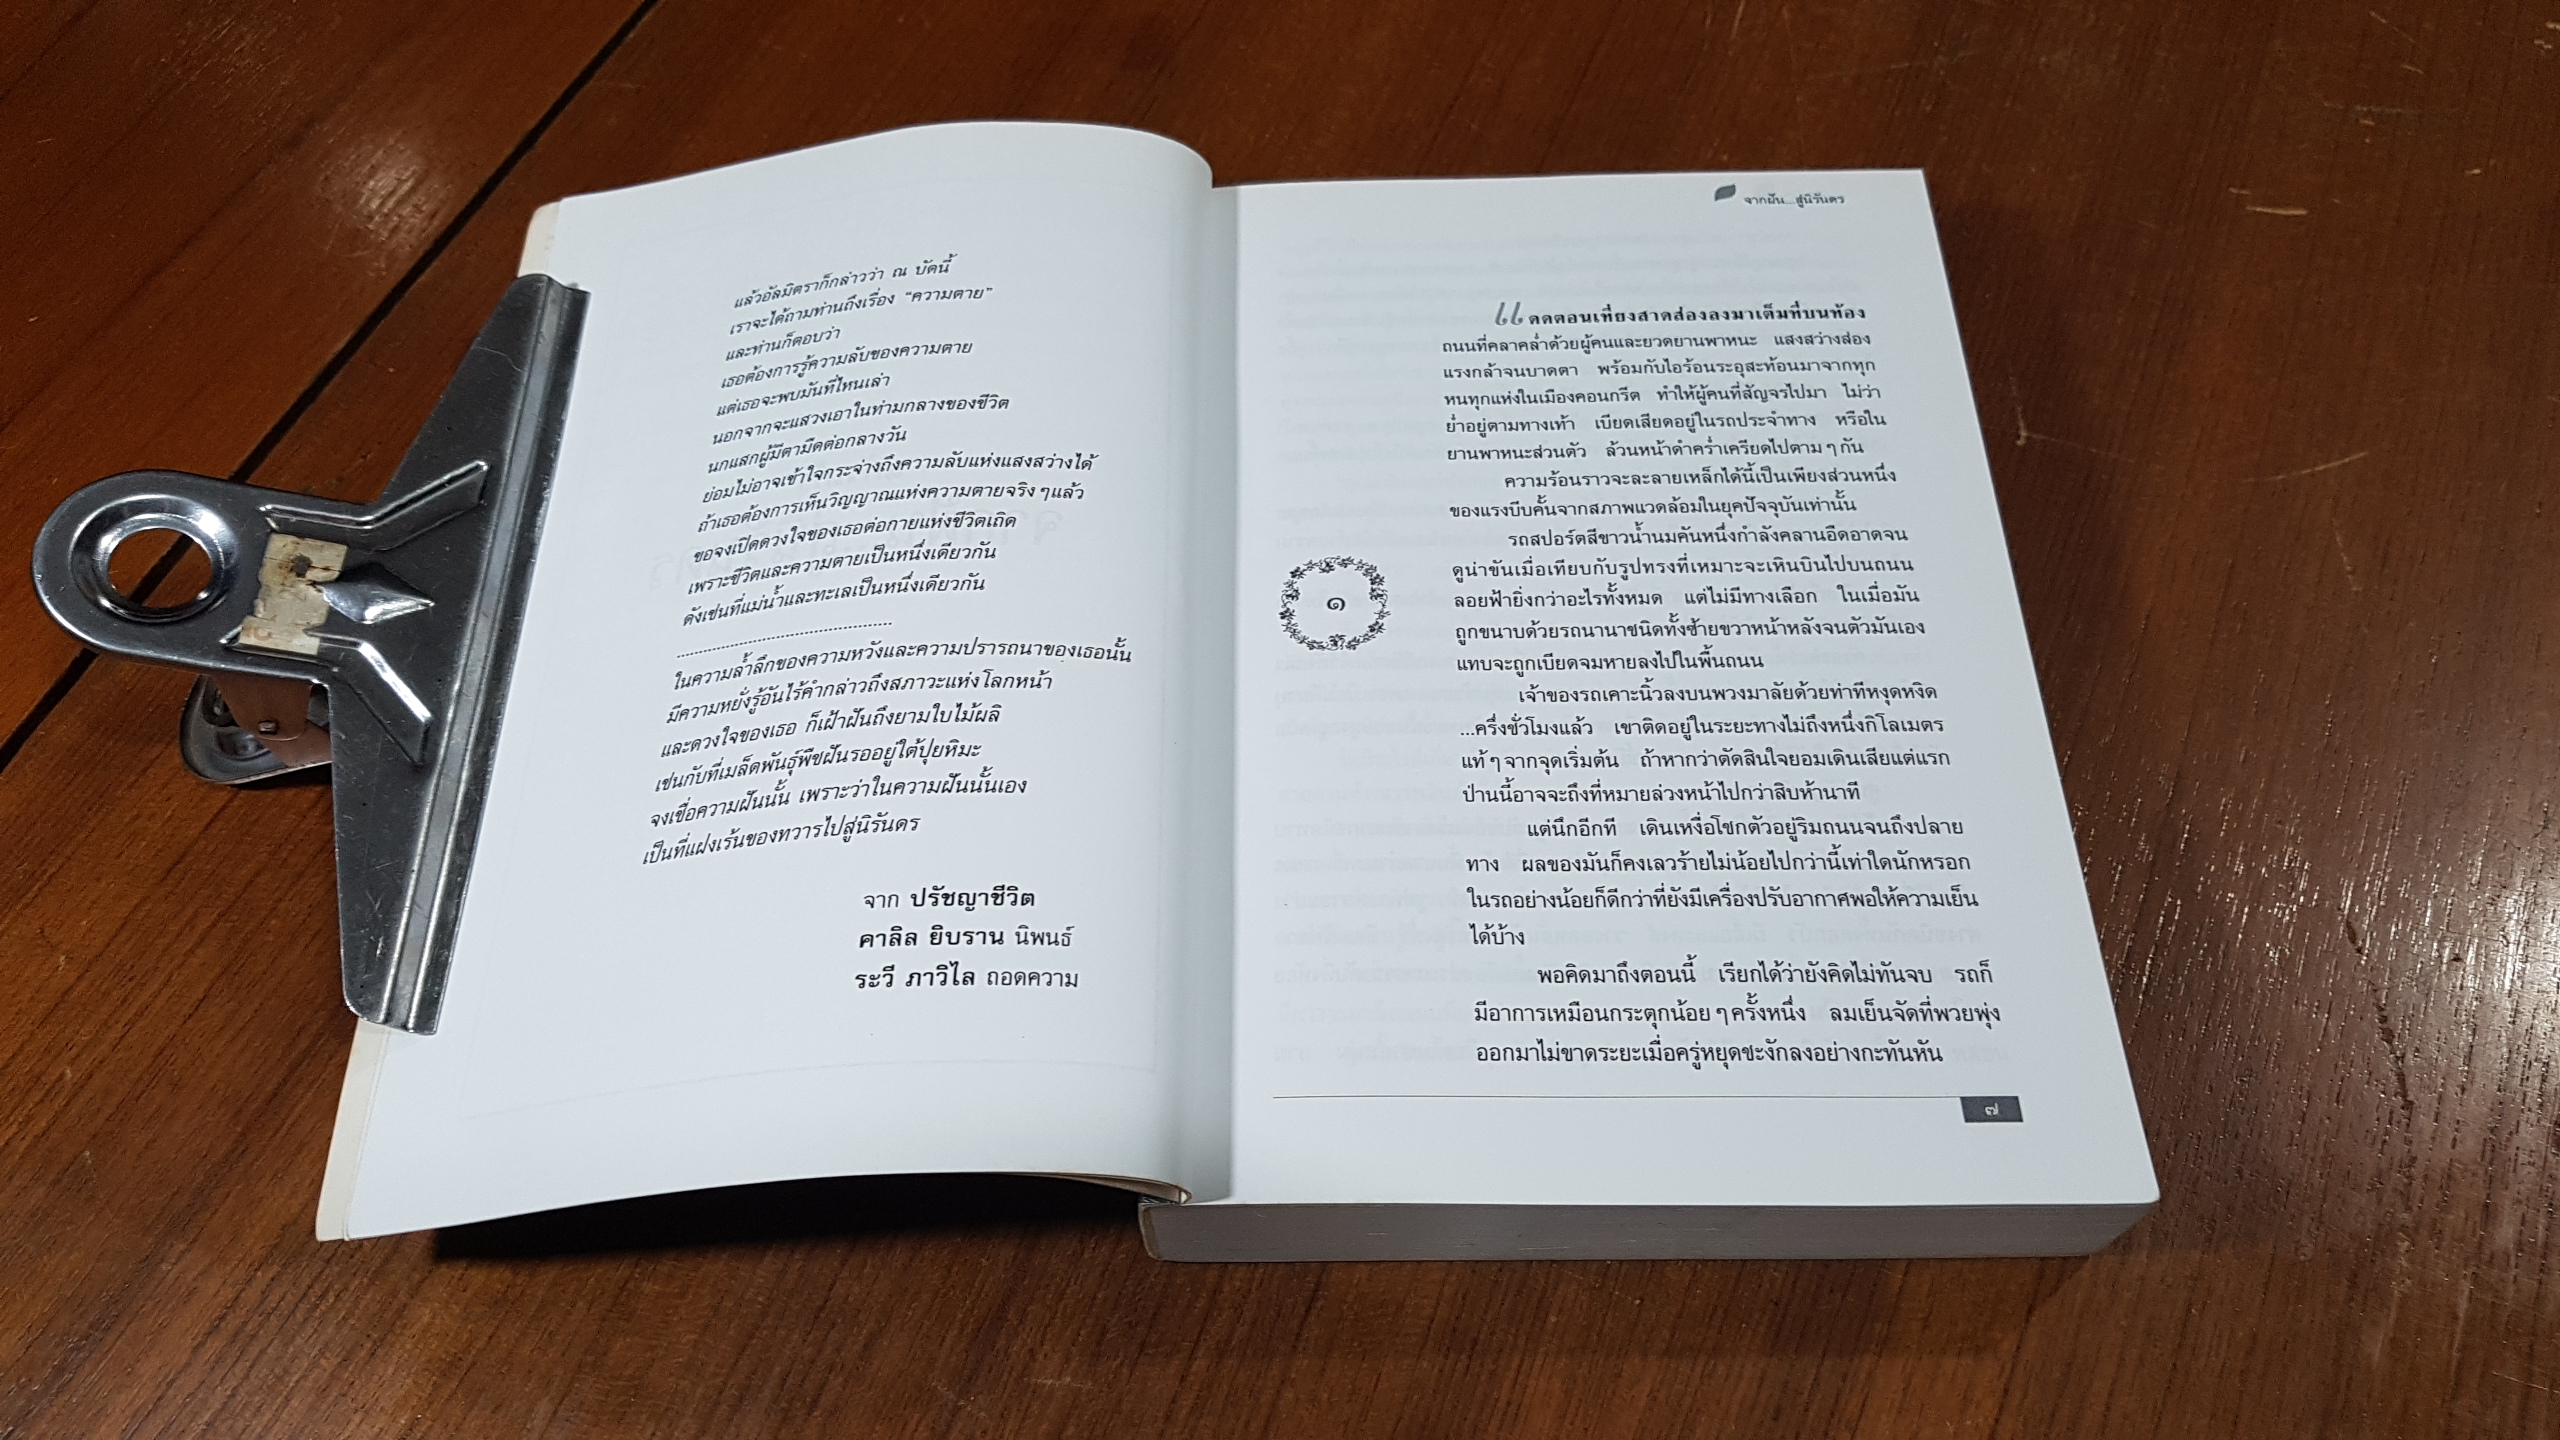 แล้วอัลมิตราก็กล่าวว่า ณ บัดนี้
เราจะได้ถามท่านถึงเรื่อง “ความตาย”
และท่านก็ตอบว่า
เธอต้องการรู้ความลับของความตาย
แต่เธอจะพบมันที่ไหนเล่า
นอกจากจะแสวงเอาในท่ามกลางของชีวิต
นกแสกผู้มีตามืดต่อกลางวัน
ย่อมไม่อาจเข้าใจกระจ่างถึงความลับแห่งแสงสว่างได้
ถ้าเธอต้องการเห็นวิญญาณแห่งความตายจริง ๆ แล้ว
ขอจงเปิดดวงใจของเธอต่อกายแห่งชีวิตเถิด
เพราะชีวิตและความตายเป็นหนึ่งเดียวกัน
ดังเช่นที่แม่น้ำและทะเลเป็นหนึ่งเดียวกัน
........................................
ในความล้ำลึกของความหวังและความปรารถนาของเธอนั้น
มีความหยั่งรู้อันไร้คำกล่าวถึงสภาวะแห่งโลกหน้า
และดวงใจของเธอ ก็เฝ้าฝันถึงยามใบไม้ผลิ
เช่นกับที่เมล็ดพันธุ์พืชฝันรออยู่ใต้ปุยหิมะ
จงเชื่อความฝันนั้น เพราะว่าในความฝันนั้นเอง
เป็นที่แฝงเร้นของทวารไปสู่นิรันดร
จาก ปรัชญาชีวิต
คาลิล ยิบราน นิพนธ์
ระวี ภาวิไล ถอดความ
จากฝัน...สู่นิรันดร
แดดตอนเที่ยงสาดส่องลงมาเต็มที่บนท้อง
ถนนที่คลาคล่ำด้วยผู้คนและยวดยานพาหนะ แสงสว่างส่อง
แรงกล้าจนบาดตา พร้อมกับไอร้อนระอุสะท้อนมาจากทุก
หนทุกแห่งในเมืองคอนกรีต ทำให้ผู้คนที่สัญจรไปมา ไม่ว่า
ย่ำอยู่ตามทางเท้า เบียดเสียดอยู่ในรถประจำทาง หรือใน
ยานพาหนะส่วนตัว ล้วนหน้าดำคร่ำเครียดไปตาม ๆ กัน
ความร้อนราวจะละลายเหล็กได้นี้เป็นเพียงส่วนหนึ่ง
ของแรงบีบคั้นจากสภาพแวดล้อมในยุคปัจจุบันเท่านั้น
รถสปอร์ตสีขาวน้ำนมคันหนึ่งกำลังคลานอืดอาดจน
ดูน่าขันเมื่อเทียบกับรูปทรงที่เหมาะจะเหินบินไปบนถนน
ลอยฟ้ายิ่งกว่าอะไรทั้งหมด แต่ไม่มีทางเลือก ในเมื่อมัน
ถูกขนาบด้วยรถนานาชนิดทั้งซ้ายขวาหน้าหลังจนตัวมันเอง
แทบจะถูกเบียดจมหายลงไปในพื้นถนน
๑
เจ้าของรถเคาะนิ้วลงบนพวงมาลัยด้วยท่าทีหงุดหงิด
...ครึ่งชั่วโมงแล้ว เขาติดอยู่ในระยะทางไม่ถึงหนึ่งกิโลเมตร
แท้ ๆ จากจุดเริ่มต้น ถ้าหากว่าตัดสินใจยอมเดินเสียแต่แรก
ป่านนี้อาจจะถึงที่หมายล่วงหน้าไปกว่าสิบห้านาที
แต่นึกอีกที เดินเหงื่อโชกตัวอยู่ริมถนนจนถึงปลาย
ทาง ผลของมันก็คงเลวร้ายไม่น้อยไปกว่านี้เท่าใดนักหรอก
ในรถอย่างน้อยก็ดีกว่าที่ยังมีเครื่องปรับอากาศพอให้ความเย็น
ได้บ้าง
พอคิดมาถึงตอนนี้ เรียกได้ว่ายังคิดไม่ทันจบ รถก็
มีอาการเหมือนกระตุกน้อย ๆ ครั้งหนึ่ง ลมเย็นจัดที่พวยพุ่ง
ออกมาไม่ขาดระยะเมื่อครู่หยุดชะงักลงอย่างกะทันหัน
๗